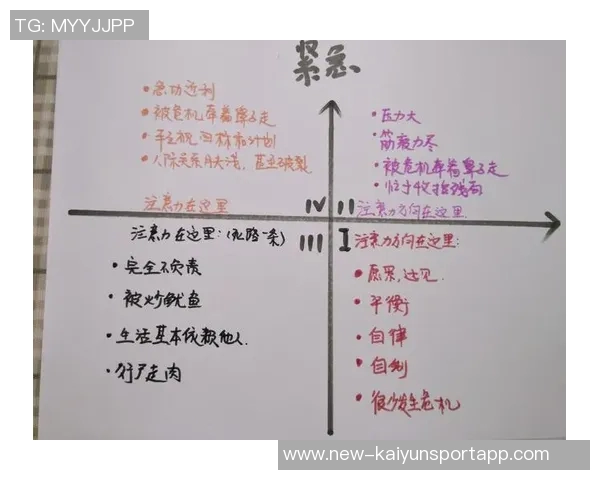 TG: MYYJJPP
紧急
• 急功近利
• 被危机牵着鼻子走
• 轻视目标和计划
• 人际关系肤浅，甚至破裂
注意力在这里
IV
• 压力大
• 筋疲力尽
• 被危机牵着鼻子走
• 忙于收拾残局
II
注意力方向在这里
注意力在这里：(死路一条)
III
• 完全不负责
• 被炒鱿鱼
• 生活基本依赖他人
• 行尸走肉
I
注意力方向在这里：
• 愿景，远见
• 平衡
• 自律
• 自制
• 很少发生危机
www.new-kaiyunsportapp.com